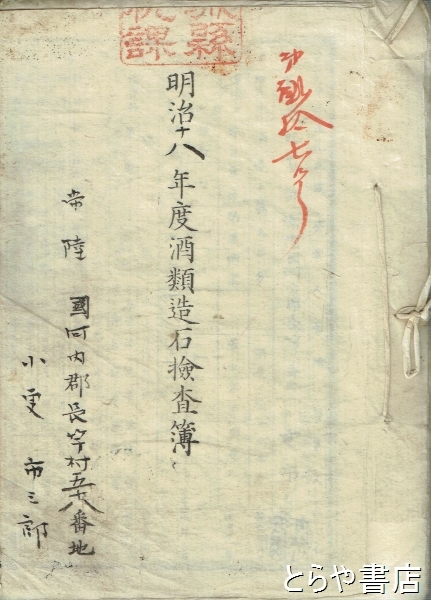 縣
課
明治十八年度酒類造石檢査簿
常陸國河内郡長竿村五十八番地
市三郎
とらや書店